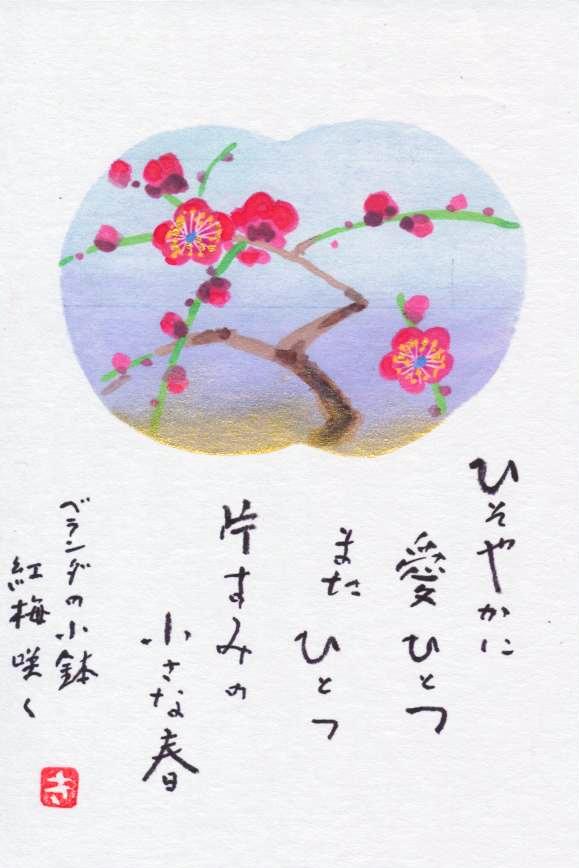 ひそやかに
愛ひとつ
またひとつ
片すみの
小さな春
ベランダの小鉢
紅梅咲く
き